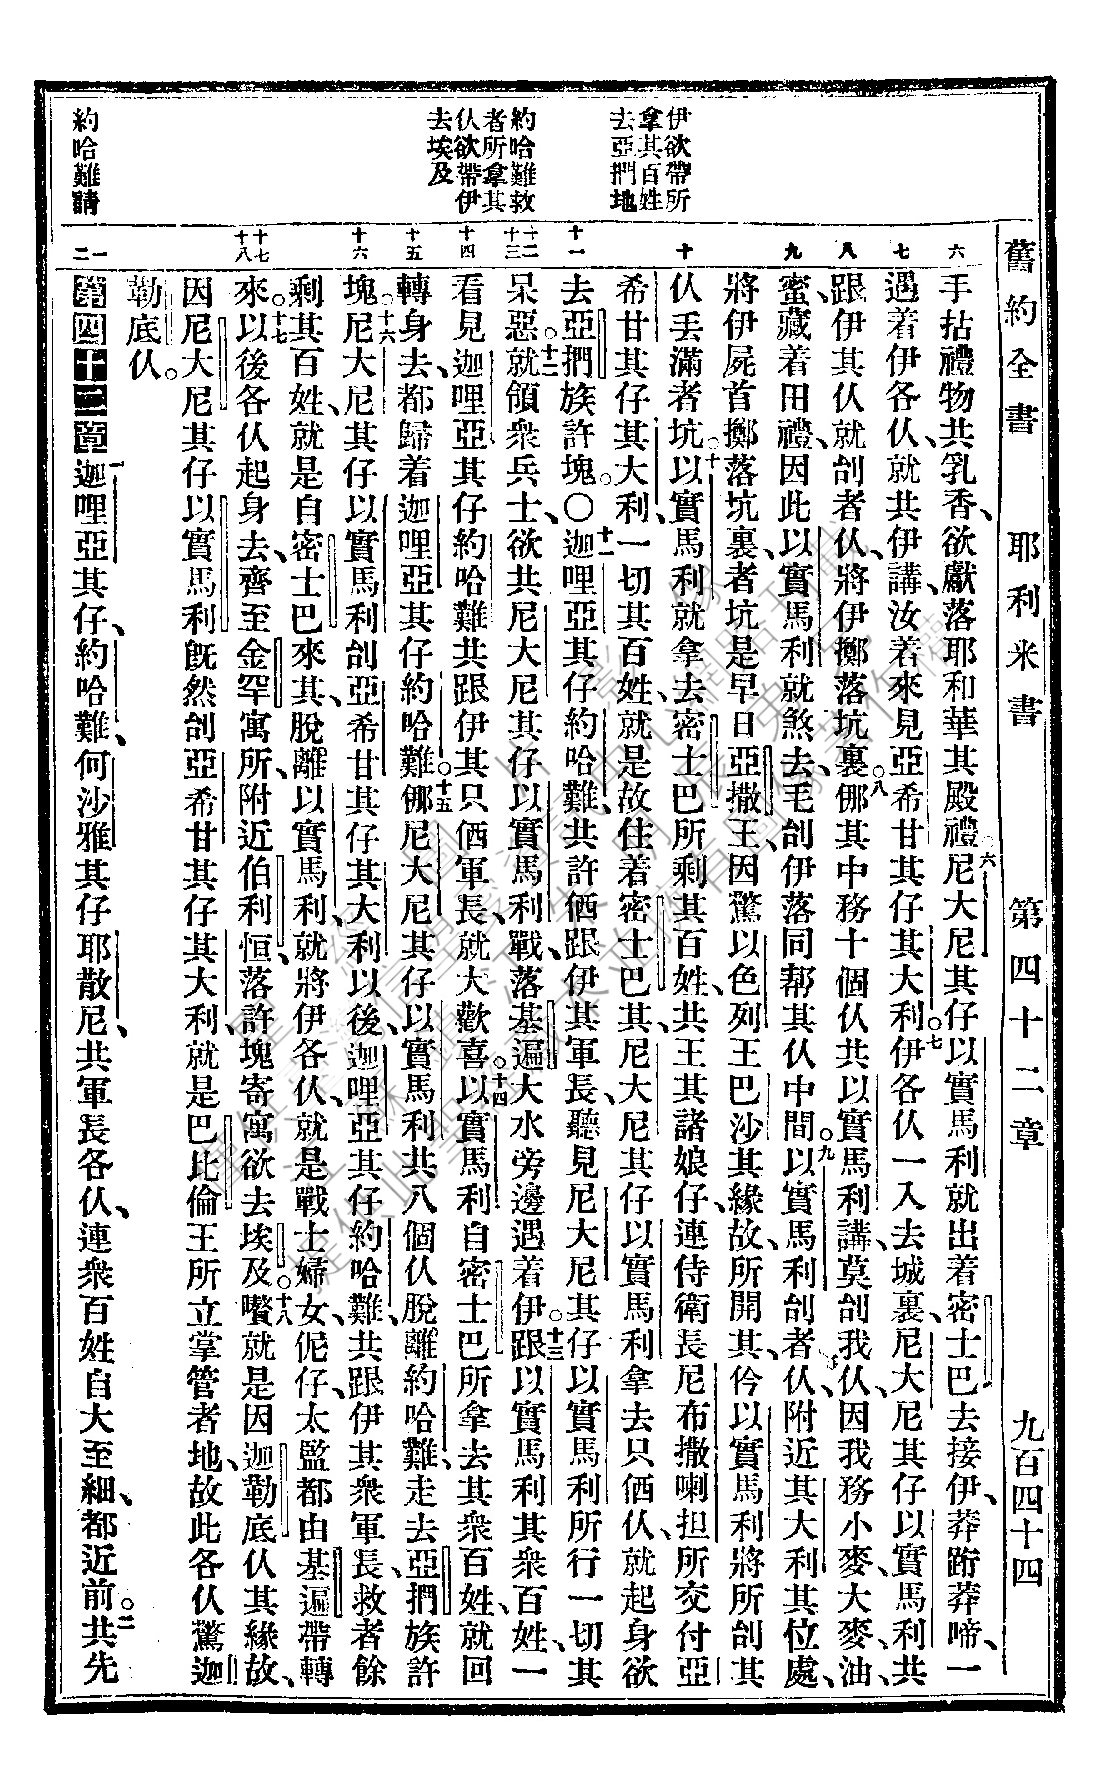 舊約全書　耶利米書　第四十二章　九百四十四
伊欲帶所
拿其百姓
去亞捫地
約哈難救
者所拿其
仈欲帶伊
去埃及
約哈難請
六 七 八 九 十 十一 十二 十三 十四 十五 十六 十七 十八 一 二
手拈禮物共乳香、欲獻落耶和華其殿禮。六尼大尼其仔以實馬利就出着密士巴去接伊、莽跔莽啼、一
遇着伊各仈、就共伊講、汝着來見亞希甘其仔其大利。七伊各仈一入去城裏、尼大尼其仔以實馬利共
跟伊其仈就刣者仈、將伊擲落坑裏。八㑚其中務十個仈共以實馬利講、莫刣我仈、因我務小麥、大麥、油、
蜜、藏着田禮、因此以實馬利就煞去、毛刣伊落同幇其仈中間。九以實馬利刣者仈、附近其大利其位處、
將伊屍首擲落坑裏、者坑是早日亞撒王、因驚以色列王巴沙其緣故、所開其、伶以實馬利將所刣其
仈丢滿者坑。十以實馬利就拿去密士巴所剩其百姓、共王其諸娘仔、連侍衛長尼布撒喇担所交付亞
希甘其仔其大利一切其百姓、就是故住着密士巴其、尼大尼其仔以實馬利拿去只価仈、就起身欲
去亞捫族許塊。〇十一迦哩亞其仔約哈難、共許価跟伊其軍長、聽見尼大尼其仔以實馬利所行一切其
呆惡。十二就領衆兵士、欲共尼大尼其仔以實馬利戰、落基遍大水旁邊遇着伊。十三跟以實馬利其衆百姓、一
看見迦哩亞其仔約哈難共跟伊其只価軍長、就大歡喜。十四以實馬利自密士巴所拿去其衆百姓、就回
轉身去、都歸着迦哩亞其仔約哈難。十五㑚尼大尼其仔以實馬利共八個仈脫離約哈難、走去亞捫族許
塊。十六尼大尼其仔以實馬利刣亞希甘其仔其大利以後、迦哩亞其仔約哈難、共跟伊其衆軍長、救者餘
剩其百姓、就是自密士巴來其、脫離以實馬利、就將伊各仈、就是戰士婦女伲仔、太監、都由基遍帶轉
來。十七以後各仈起身去、齊至金罕寓所、附近伯利恒、落許塊寄寓、欲去埃及。十八嚽就是因迦勒底仈其緣故、
因尼大尼其仔以實馬利既然刣亞希甘其仔其大利、就是巴比倫王所立掌管者地、故此各仈驚迦
勒底仈。
第四十二章　一迦哩亞其仔、約哈難、何沙雅其仔耶散尼、共軍長各仈、連衆百姓自大至細、都近前。二共先